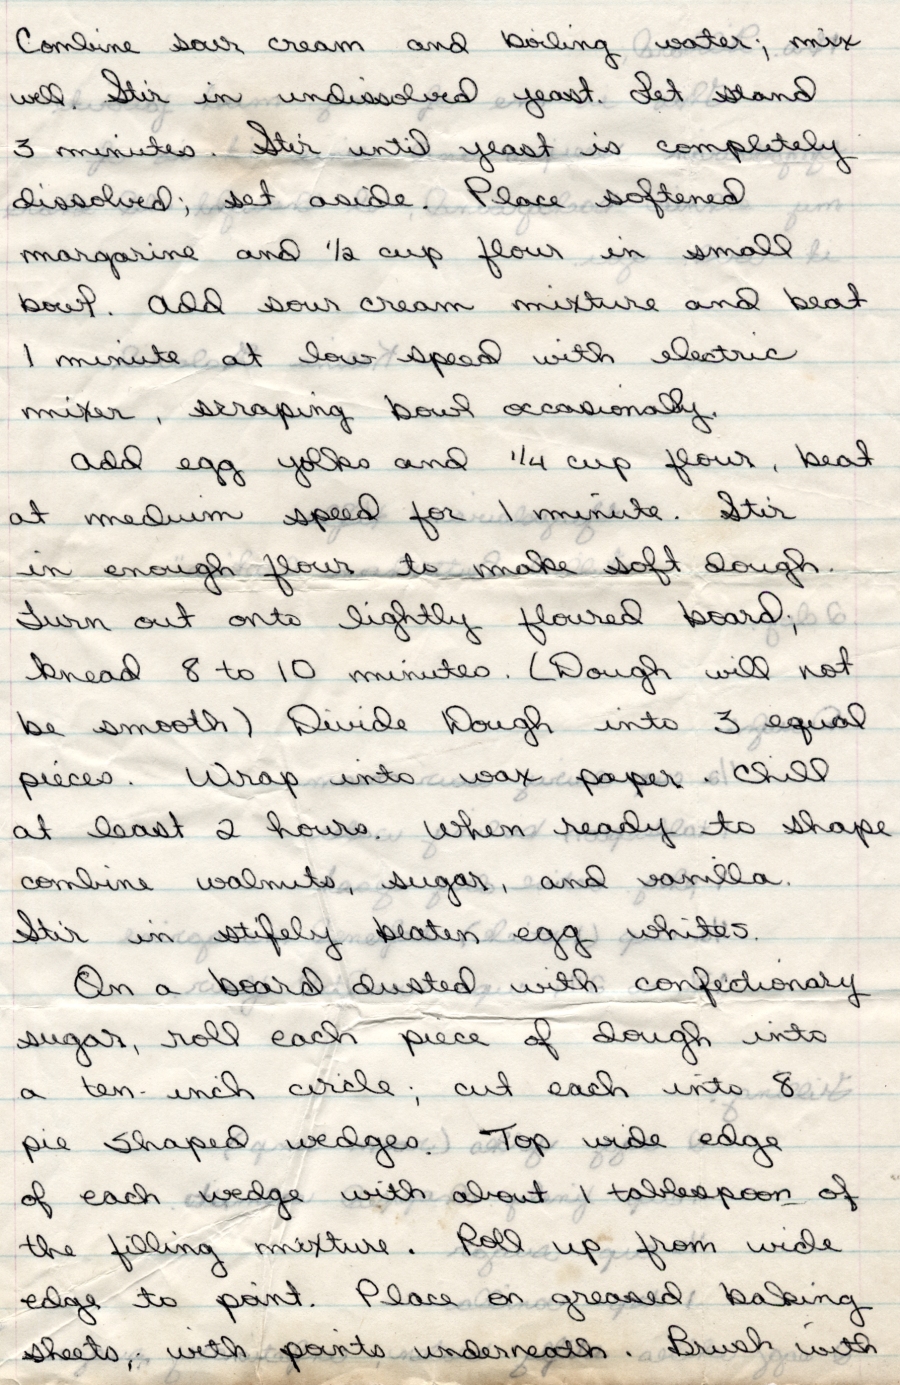 Combine sour cream and boiling water; mix
well. Stir in undissolved yeast. Let stand
3 minutes. Stir until yeast is completely
dissolved; set aside. Place softened
margarine and 1/2 cup flour in small
bowl. Add sour cream mixture and beat
1 minute at low speed with electric
mixer, scraping bowl occasionally.
Add egg yolks and 1/4 cup flour, beat
at meduim speed for 1 minute. Stir
in enough flour to make soft dough.
Turn out onto lightly floured board;
knead 8 to 10 minutes. (Dough will not
be smooth) Divide Dough into 3 equal
pieces. Wrap into wax paper. Chill
at least 2 hours. When ready to shape
combine walnuts, sugar, and vanilla.
Stir in stifely beaten egg whites.
On a board dusted with confectionary
sugar, roll each piece of dough into
a ten-inch circle; cut each into 8
pie shaped wedges. Top wide edge
of each wedge with about 1 tablespoon of
the filling mixture. Roll up from wide
edge to point. Place on greased baking
sheets, with points underneath. Brush with